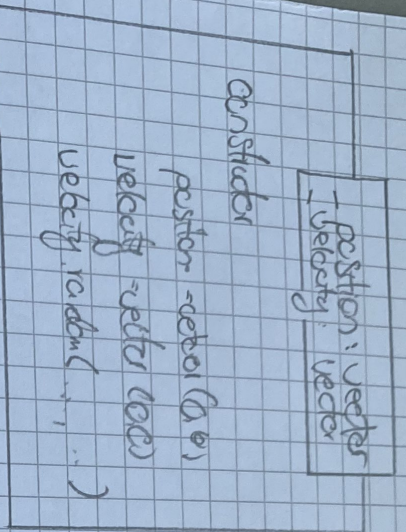 - position: vector
- velocity: vector
constructor
position = vector (0,0)
velocity = vector (0,0)
velocity.random(..., ...)